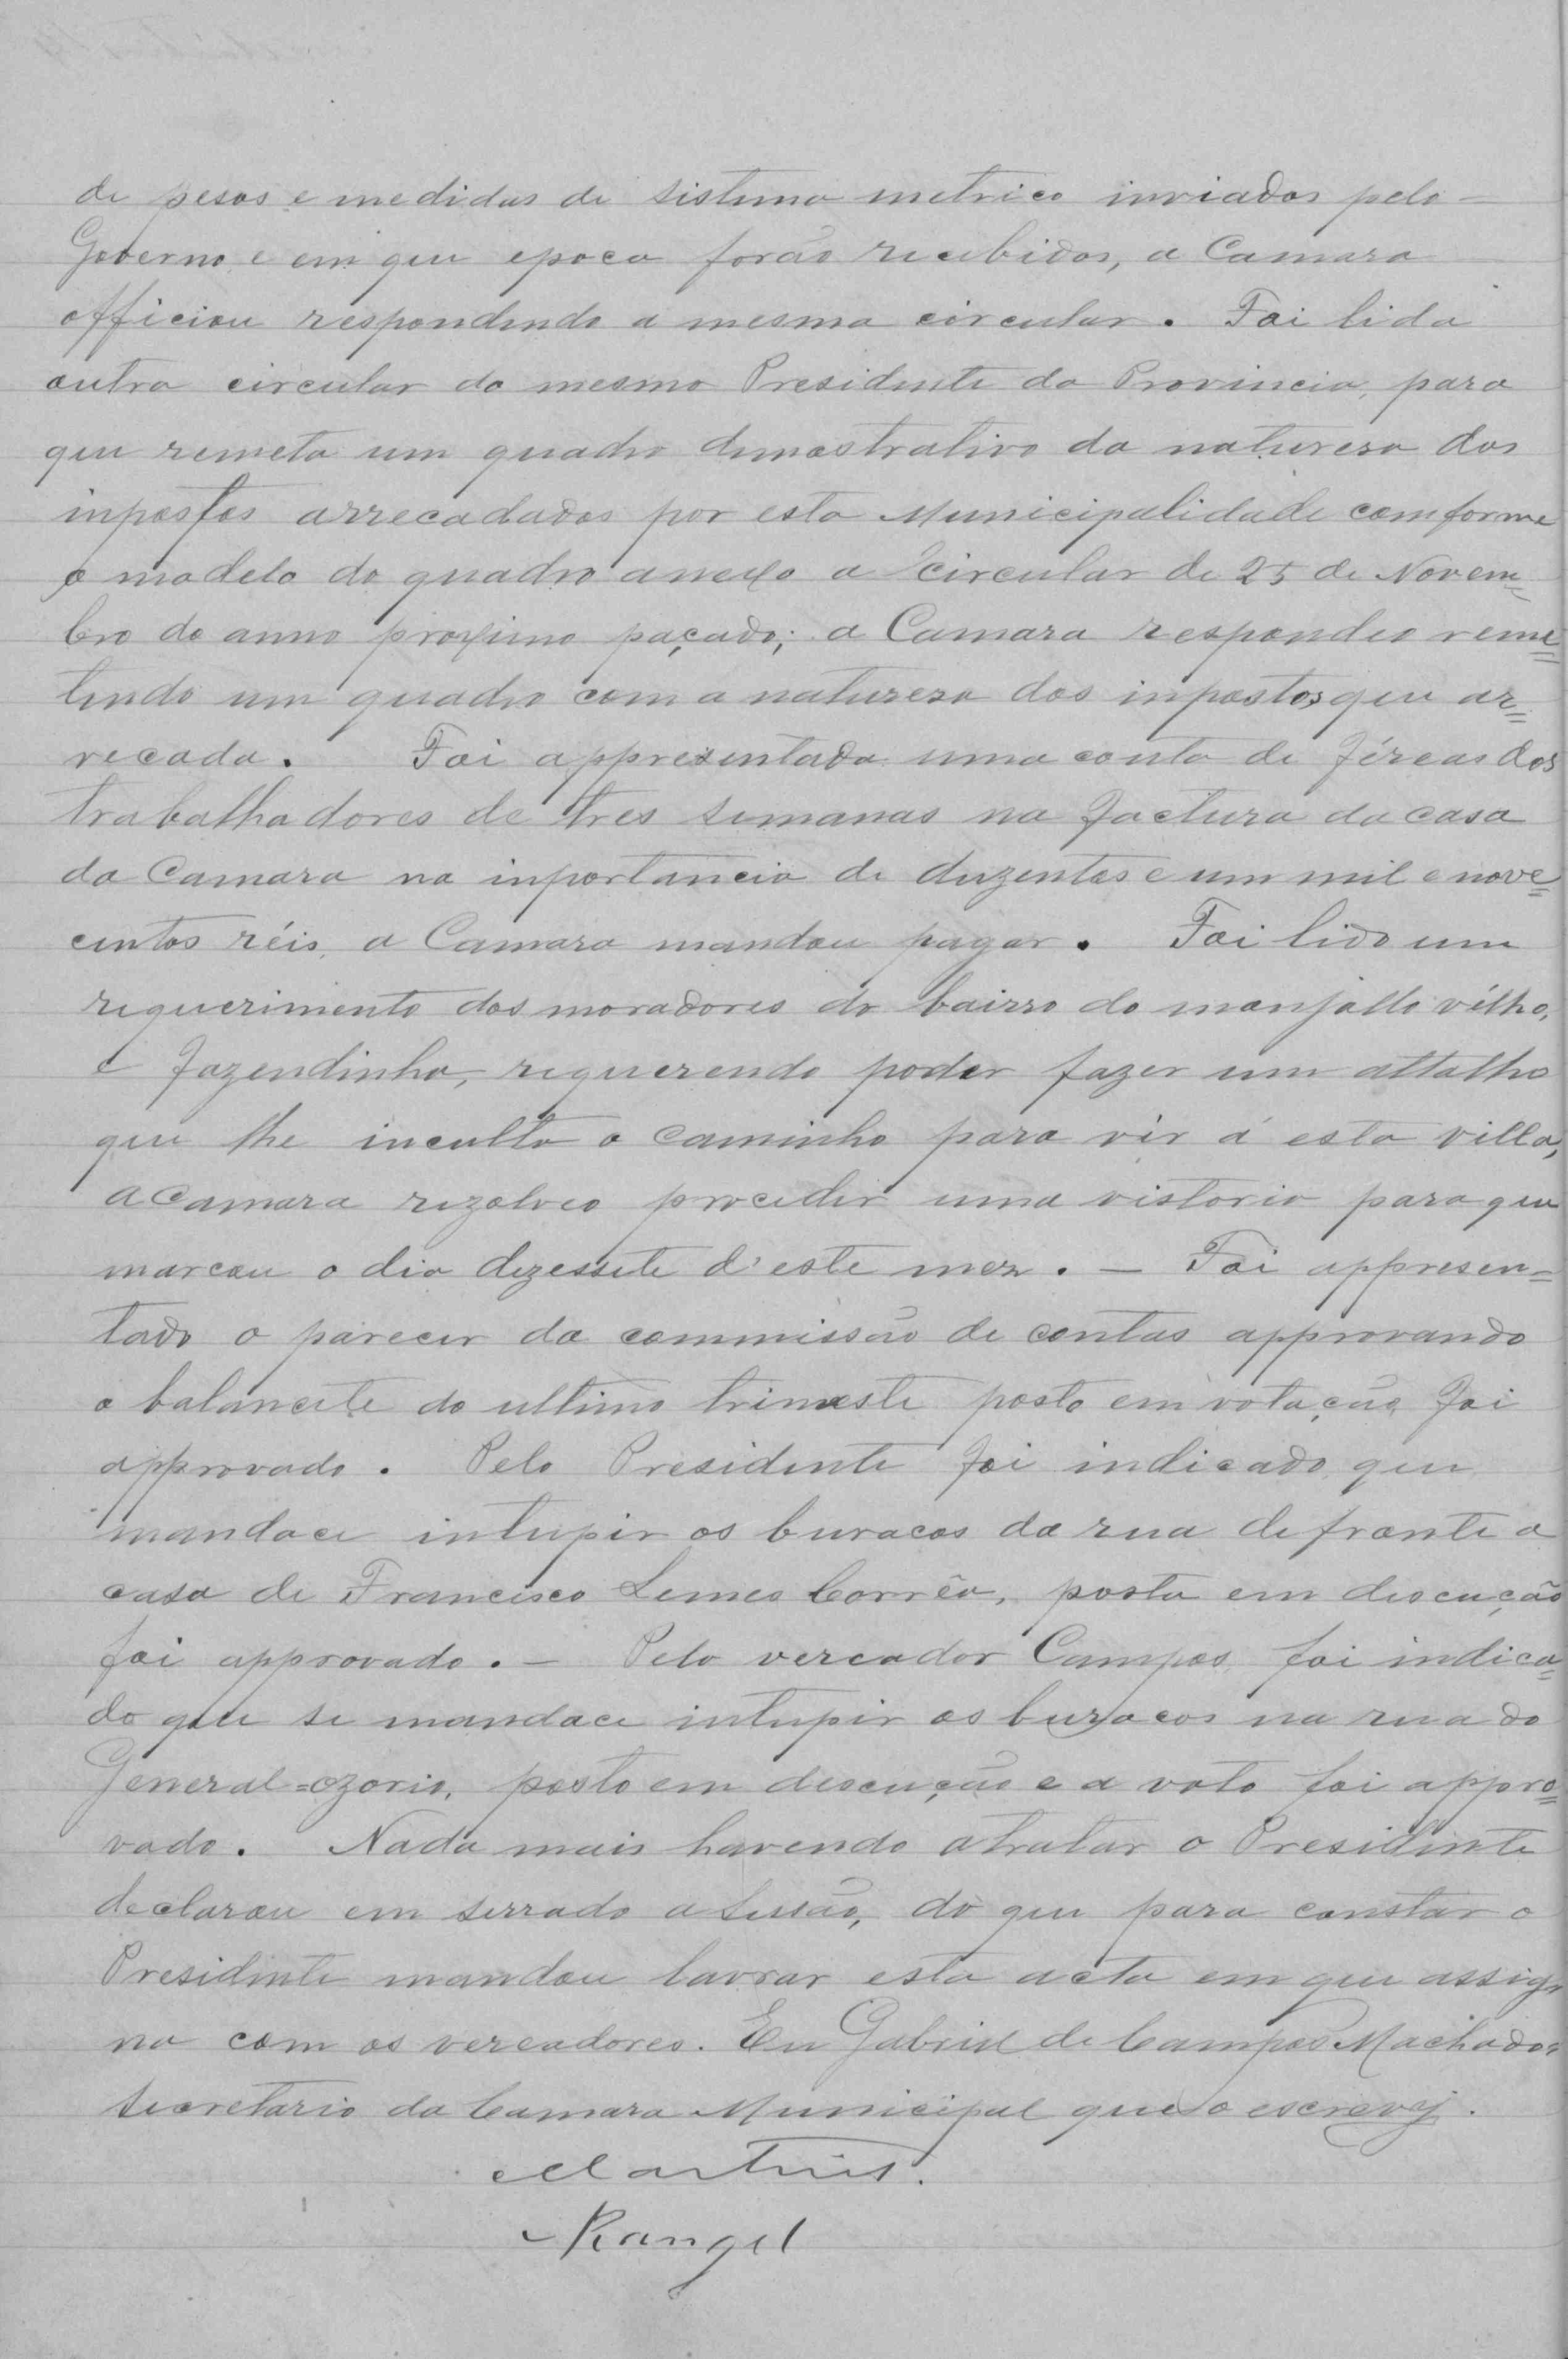 de pesos e medidas de sistema metrico inviados pelo —
Governo e em que epoca forão recebidos, a Camara
officiou respondendo a mesma circular. Foi lida
outra circular do mesmo Presidente da Provincia, para
que remeta um quadro demostrativo da naturesa dos
inpostos arrecadados por esta Municipalidade comforme
o modelo do quadro anexo a circular de 25 de Novem=
bro do anno proximo paçado; a Camara respondeo reme=
tendo um quadro com a naturesa dos inpostos que ar=
recada. Foi appresentada uma conta de féreas dos
trabalhadores de tres semanas na factura da casa
da Camara na inportancia de duzentos e um mil e nove=
centos réis, a Camara mandou pagar. Foi lido um
requerimento dos moradores do bairro do monjollo vélho,
e Fazendinha, requerendo poder fazer um attalho
que lhe inculta o caminho para vir á esta villa,
a Camara rezolveo proceder uma vistoria para que
marcou o dia dezessete d'este mez. — Foi appresen=
tado o parecer da commissão de contas approvando
o balancete do ultimo trimeste posto em votação foi
approvado. Pelo Presidente foi indicado que
mandace intupir os buracos da rua defronte a
casa de Francisco Lemes Corrêa, posta em discução
foi approvado. — Pelo vereador Campos foi indica=
do que se mandace intupir os buracos na rua do
General=ozorio, posto em discução e a voto foi appro=
vado. Nada mais havendo a tratar o Presidente
declarou em serrado a sessão, do que para constar o
Presidente mandou lavrar esta acta em que assig
na com os vereadores. Eu Gabriel de Campos Machado,
secretario da Camara Municipal que o escrevy.
Martins.
Rangel